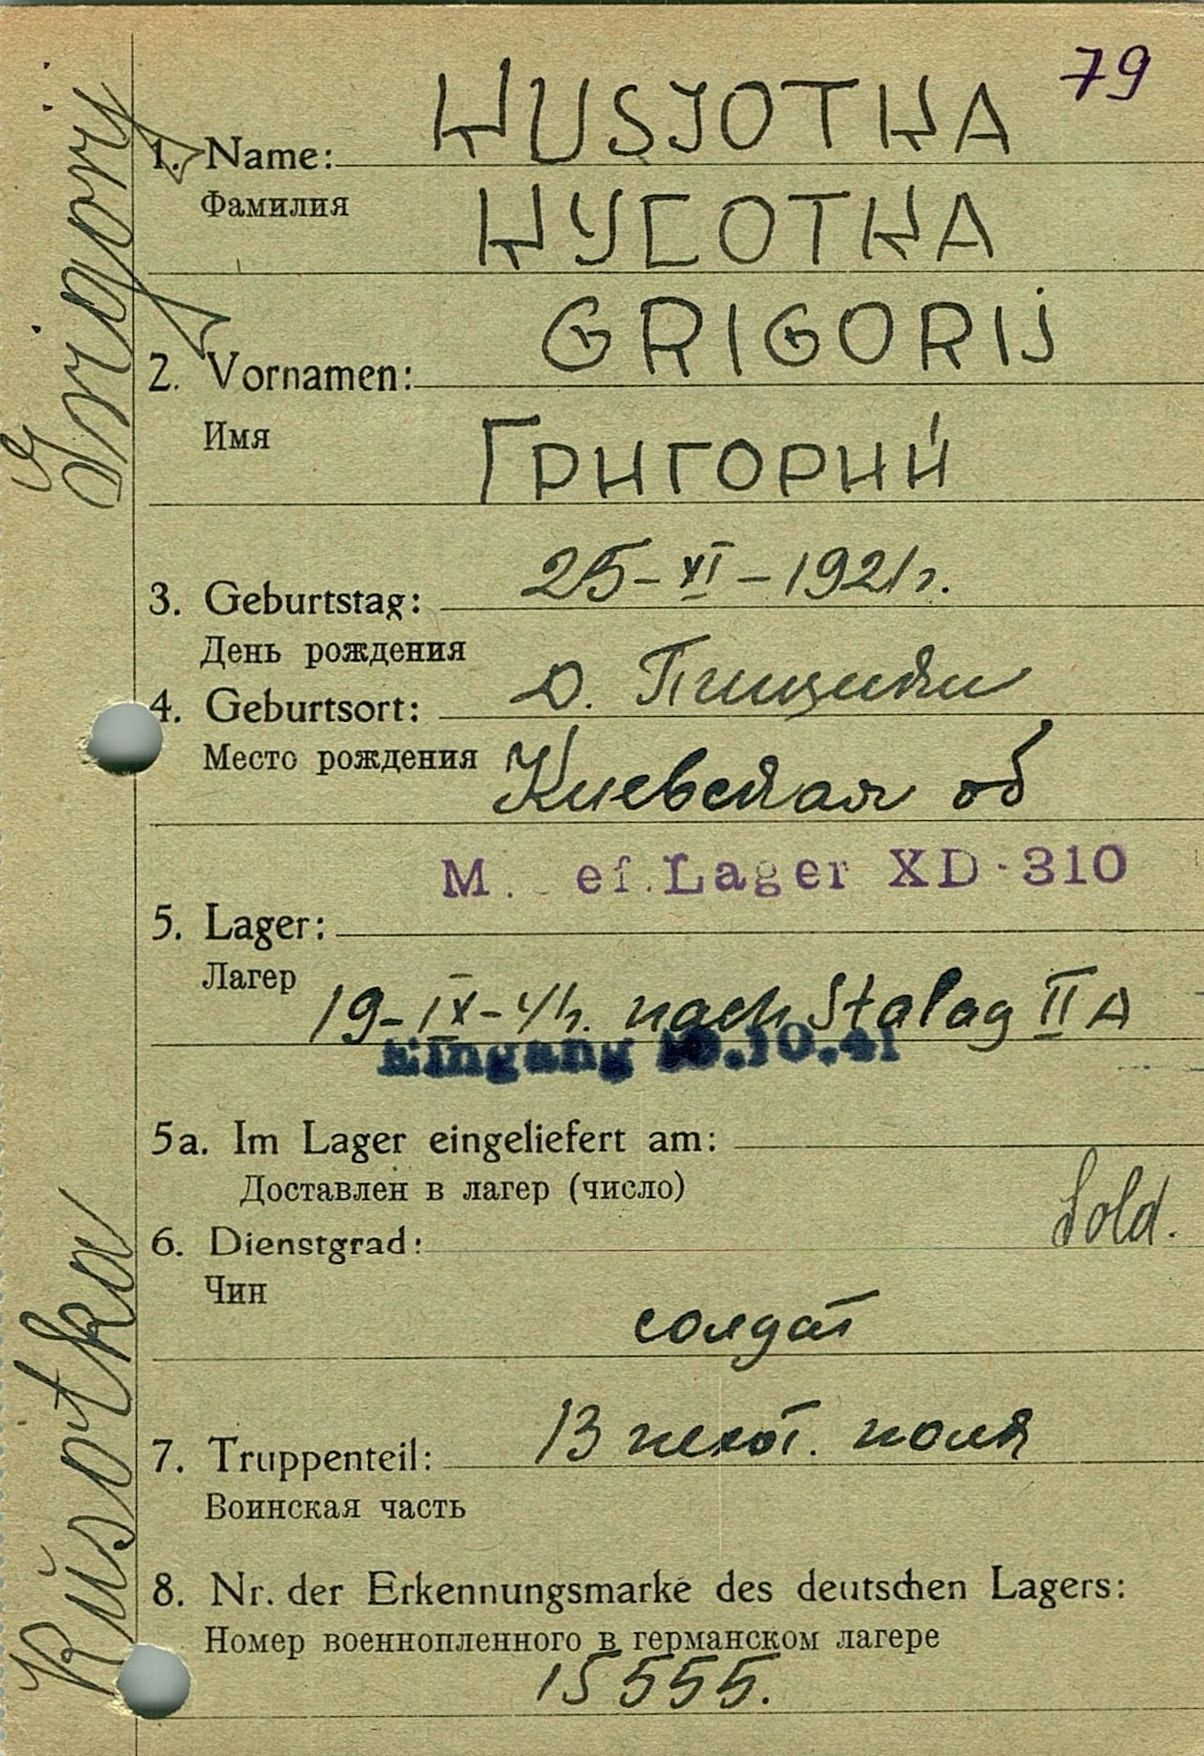 79
1. Name: KUSJOTKA
Фамилия КУСОТКА
2. Vornamen: GRIGORIJ
Имя ГРИГОРИЙ
3. Geburtstag: 25-XI-1921г.
День рождения
4. Geburtsort: д. Пищики
Место рождения Киевская об
M. ef. Lager XD-310
5. Lager:
Лагер 19-IX-41г. nach Stalag II A
Eingang 10.41
5a. Im Lager eingeliefert am:
Доставлен в лагер (число)
Sold.
6. Dienstgrad:
Чин
солдат
7. Truppenteil: 13 пехот. полк
Воинская часть
8. Nr. der Erkennungsmarke des deutschen Lagers:
Номер военнопленного в германском лагере
15555.
Kusotka Grigorij